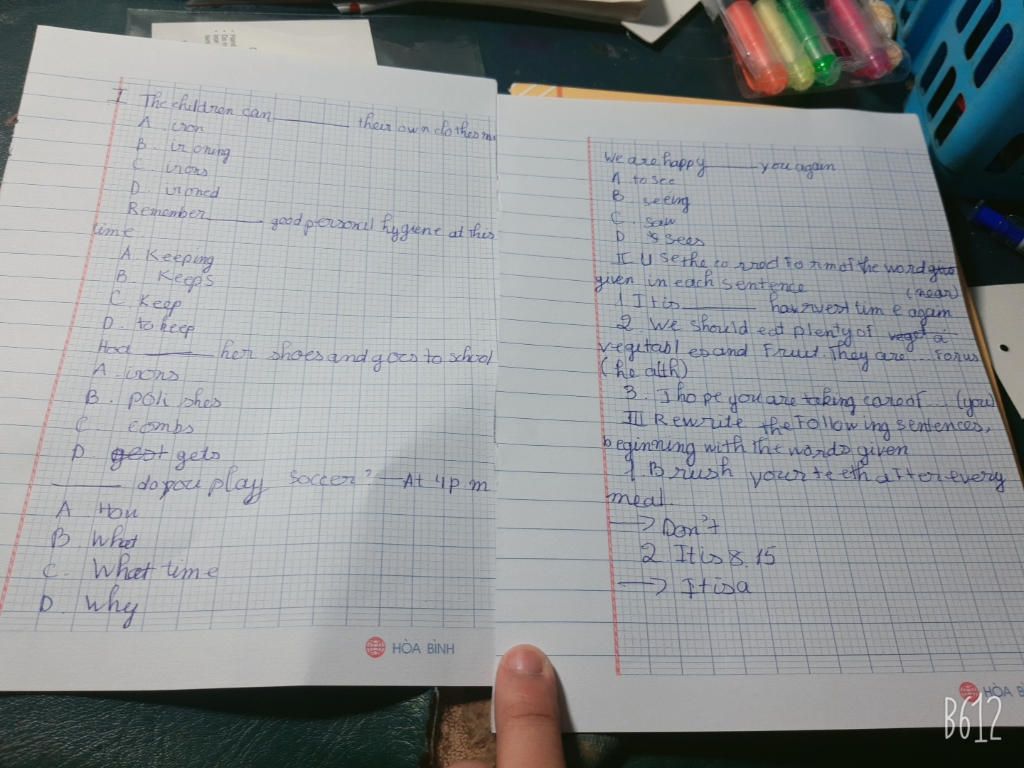 I The children can ______ their own clothes
A. iron
B. ironing
C. irons
D. ironed
Remember ______ good personal hygiene at this
time
A. Keeping
B. Keeps
C. Keep
D. to keep
Hoa ______ her shoes and goes to school
A. irons
B. polishes
C. combs
D. gets
______ do you play soccer? — At 4 p.m
A. How
B. What
C. What time
D. Why
HÒA BÌNH
We are happy ______ you again
A. to see
B. seeing
C. saw
D. sees
II Use the correct form of the word
given in each sentence
(near)
1 It is ______ harvest time again
2. We should eat plenty of
vegetables and Fruit. They are... For us
(health)
3. I hope you are taking care of .... (you)
III Rewrite the following sentences,
beginning with the words given
1. Brush your teeth after every
meal.
→ Don't
2 It is 8.15
→ It is a
HÒA B
B612